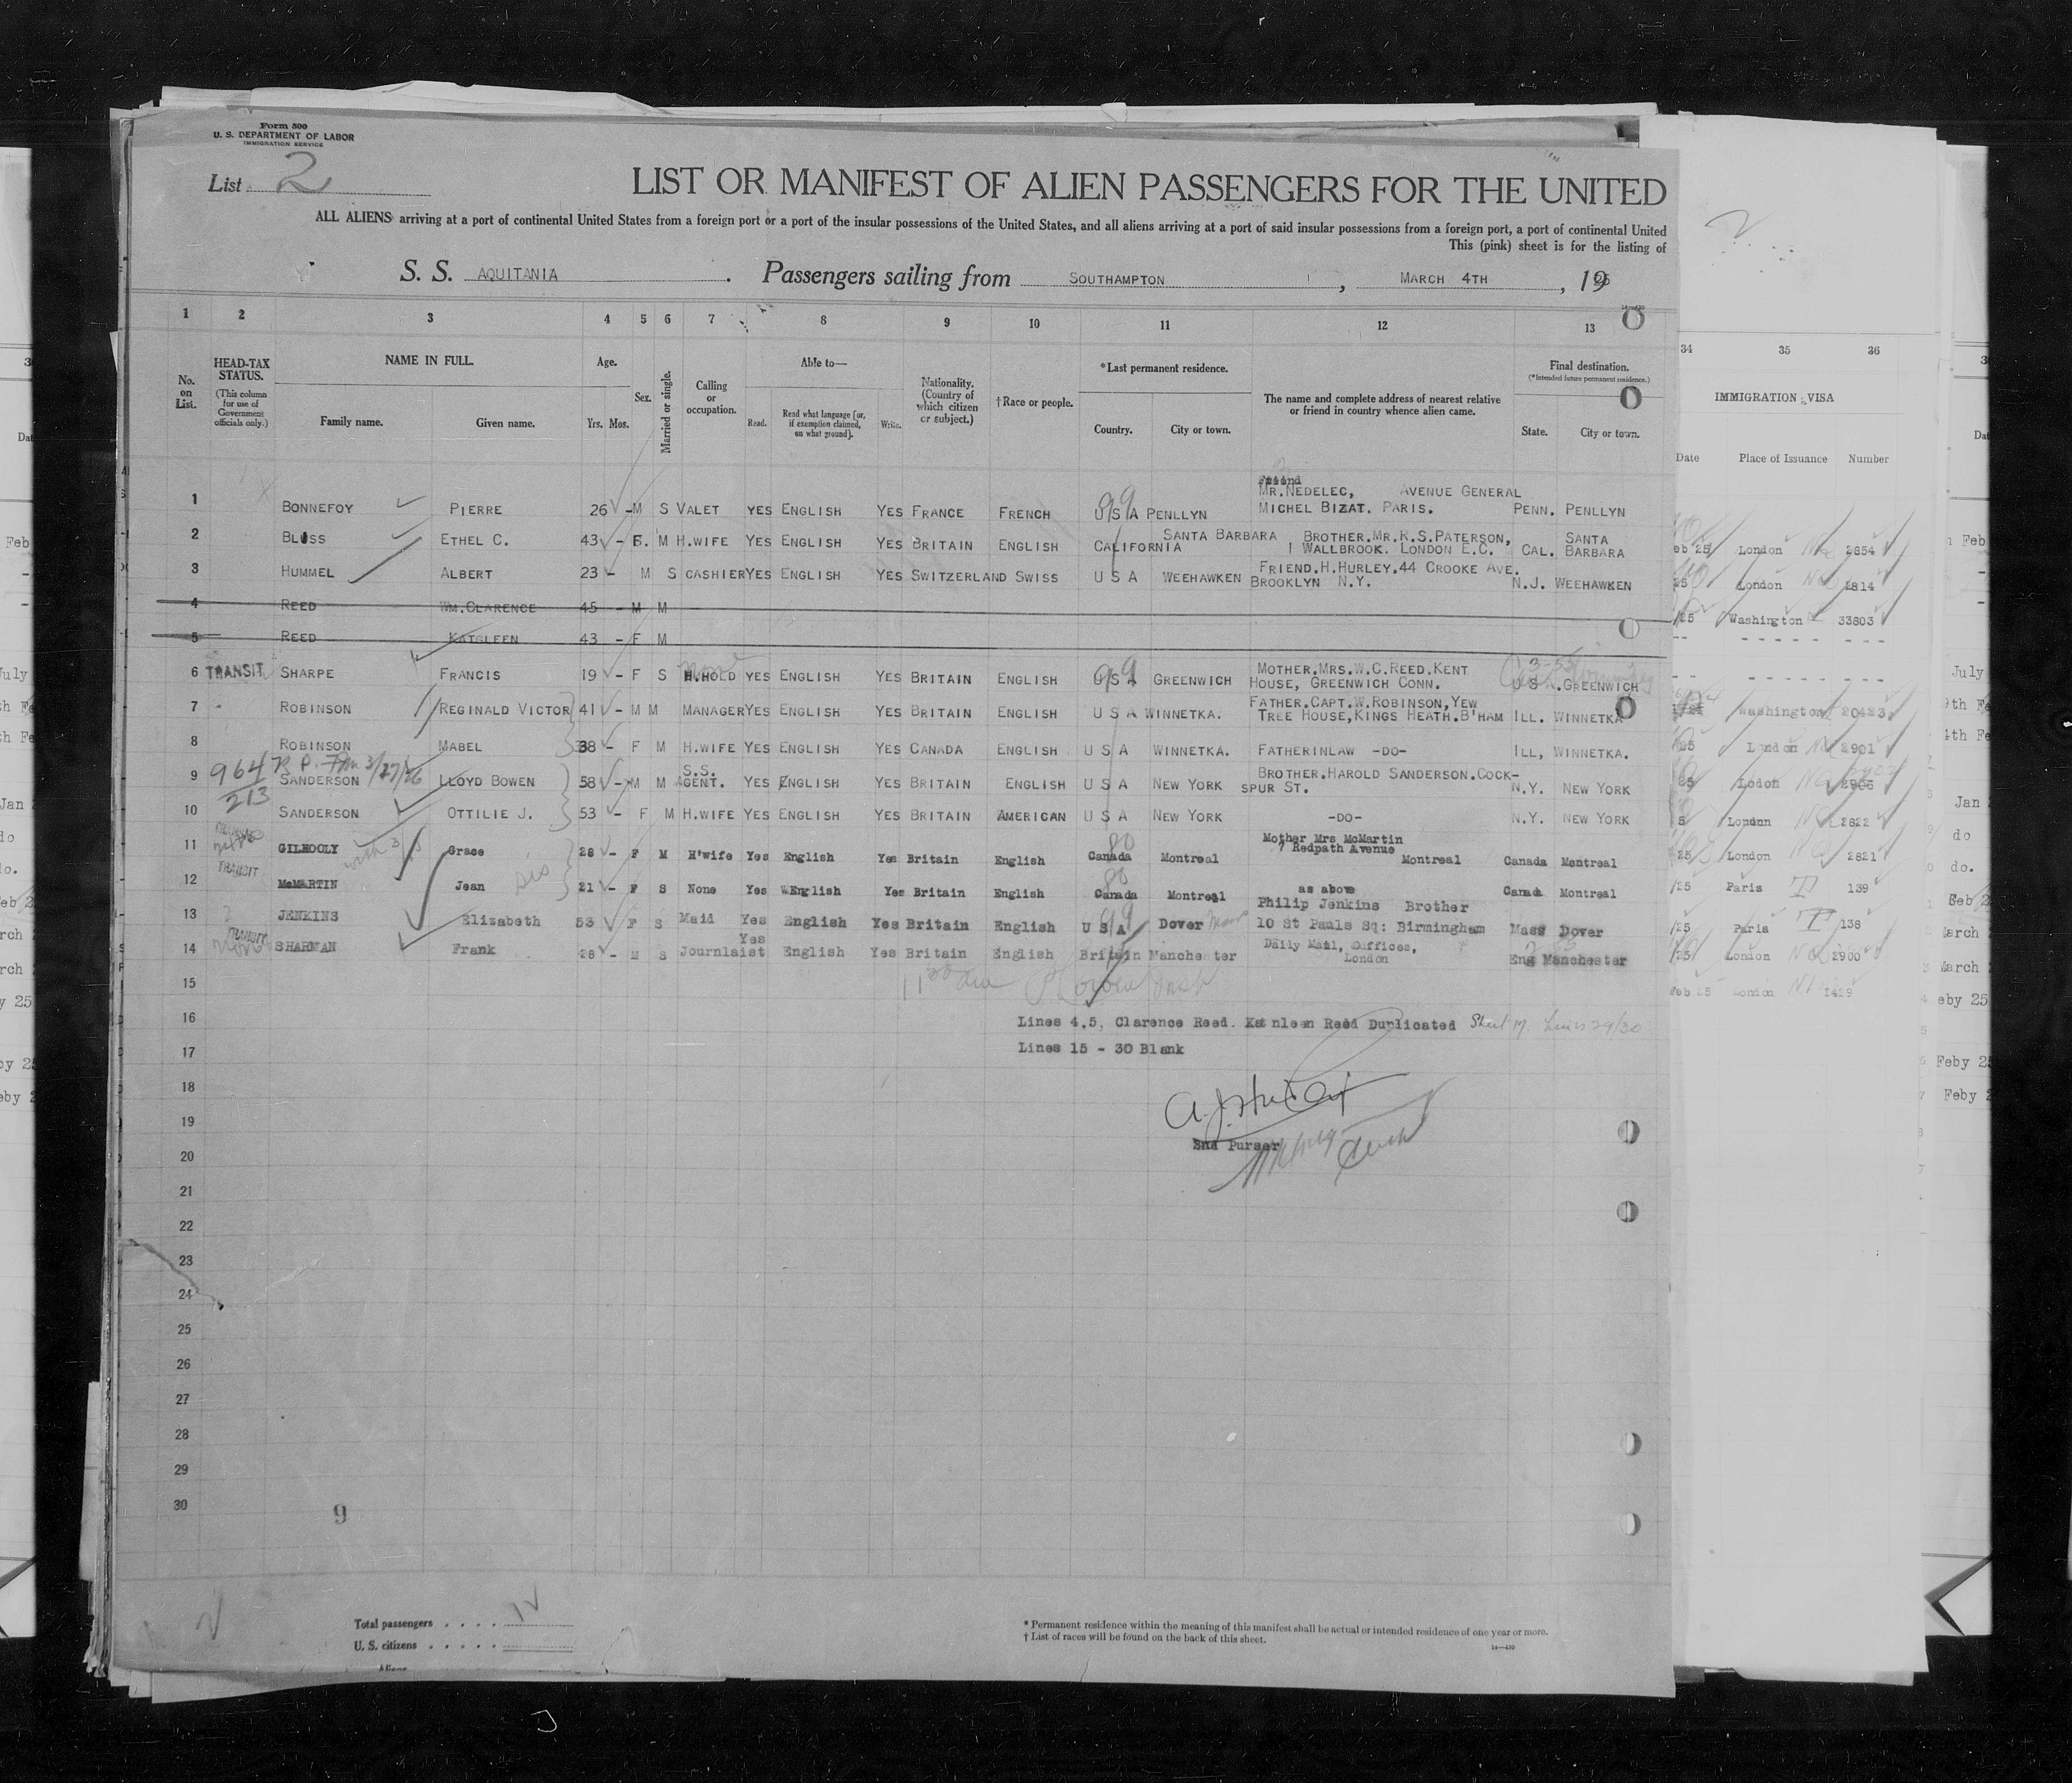 Form 500
U. S. DEPARTMENT OF LABOR
IMMIGRATION SERVICE
List 2
LIST OR MANIFEST OF ALIEN PASSENGERS FOR THE UNITED
ALL ALIENS arriving at a port of continental United States from a foreign port or a port of the insular possessions of the United States, and all aliens arriving at a port of said insular possessions from a foreign port, a port of continental United
This (pink) sheet is for the listing of
S. S. AQUITANIA. Passengers sailing from SOUTHAMPTON, MARCH 4TH, 19
1 2 3 4 5 6 7 8 9 10 11 12 13
34 35 36
No. on List.
HEAD-TAX STATUS.
(This column for use of Government officials only.)
NAME IN FULL.
Family name. Given name.
Age.
Yrs. Mos.
Sex.
Married or single.
Calling or occupation.
Able to—
Read. Read what language [or, if exemption claimed, on what ground]. Write.
Nationality. (Country of which citizen or subject.)
†Race or people.
*Last permanent residence.
Country. City or town.
The name and complete address of nearest relative or friend in country whence alien came.
Final destination.
(*Intended future permanent residence.)
State. City or town.
IMMIGRATION VISA
Date Place of Issuance Number
1 BONNEFOY PIERRE 26 - M S VALET YES ENGLISH YES FRANCE FRENCH U S A PENLLYN Friend MR.NEDELEC, AVENUE GENERAL MICHEL BIZAT. PARIS. PENN. PENLLYN
2 BLISS ETHEL C. 43 - F. M H.WIFE YES ENGLISH YES BRITAIN ENGLISH CALIFORNIA SANTA BARBARA BROTHER.MR.R.S.PATERSON, 1 WALLBROOK. LONDON E.C. CAL. SANTA BARBARA
eb 25 London 2854
3 HUMMEL ALBERT 23 - M S CASHIER YES ENGLISH YES SWITZERLAND SWISS U S A WEEHAWKEN FRIEND.H.HURLEY.44 CROOKE AVE. BROOKLYN N.Y. N.J. WEEHAWKEN
25 London 2814
4 REED WM.CLARENCE 45 - M M
/25 Washington 33803
5 REED KATGLEEN 43 - F M
6 TRANSIT SHARPE FRANCIS 19 - F S H.HOLD None YES ENGLISH YES BRITAIN ENGLISH U S A GREENWICH MOTHER.MRS.W.C.REED.KENT HOUSE, GREENWICH CONN. U S A.GREENWICH
7 ROBINSON REGINALD VICTOR 41 - M M MANAGER YES ENGLISH YES BRITAIN ENGLISH U S A WINNETKA. FATHER.CAPT.W.ROBINSON,YEW TREE HOUSE,KINGS HEATH.B'HAM ILL. WINNETKA
Washington 20423
8 ROBINSON MABEL 38 - F M H.WIFE YES ENGLISH YES CANADA ENGLISH U S A WINNETKA. FATHERINLAW -DO- ILL, WINNETKA.
25 London 2901
964 213 R.P. 3/27/26
9 SANDERSON LLOYD BOWEN 58 - M M S.S. AGENT. YES ENGLISH YES BRITAIN ENGLISH U S A NEW YORK BROTHER.HAROLD SANDERSON.COCK-SPUR ST. N.Y. NEW YORK
25 Lodon 2906
10 SANDERSON OTTILIE J. 53 - F M H.WIFE YES ENGLISH YES BRITAIN AMERICAN U S A NEW YORK -DO- N.Y. NEW YORK
5 London 2822
11 GILHOOLY Grace 28 - F M H'wife Yes English Yes Britain English Canada Montreal Mother Mrs McMartin 7 Redpath Avenue Montreal Canada Montreal
25 London 2821
12 TRANSIT McMARTIN Jean sis 21 - F S None Yes English Yes Britain English Canada Montreal as above Canad Montreal
/25 Paris T 139
13 JENKINS Elizabeth 53 F S Maid Yes English Yes Britain English U S A Dover Mass Philip Jenkins Brother 10 St Pauls Sq: Birmingham Mass Dover
/25 Paris T 138
14 TRANSIT SHARMAN Frank 28 - M S Journlaist Yes English Yes Britain English Britain Manchester Daily Mail, Offices, London Eng Manchester
/25 London 2900
15
Feb 25 London 2429
16 Lines 4,5, Clarence Reed. Kathleen Reed Duplicated Sheet M. Lines 29/30
17 Lines 15 - 30 Blank
18
19
2nd Purser
20
21
22
23
24
25
26
27
28
29
30
9
Total passengers . . . .
U. S. citizens . . . . .
Aliens
* Permanent residence within the meaning of this manifest shall be actual or intended residence of one year or more.
† List of races will be found on the back of this sheet.
14—430